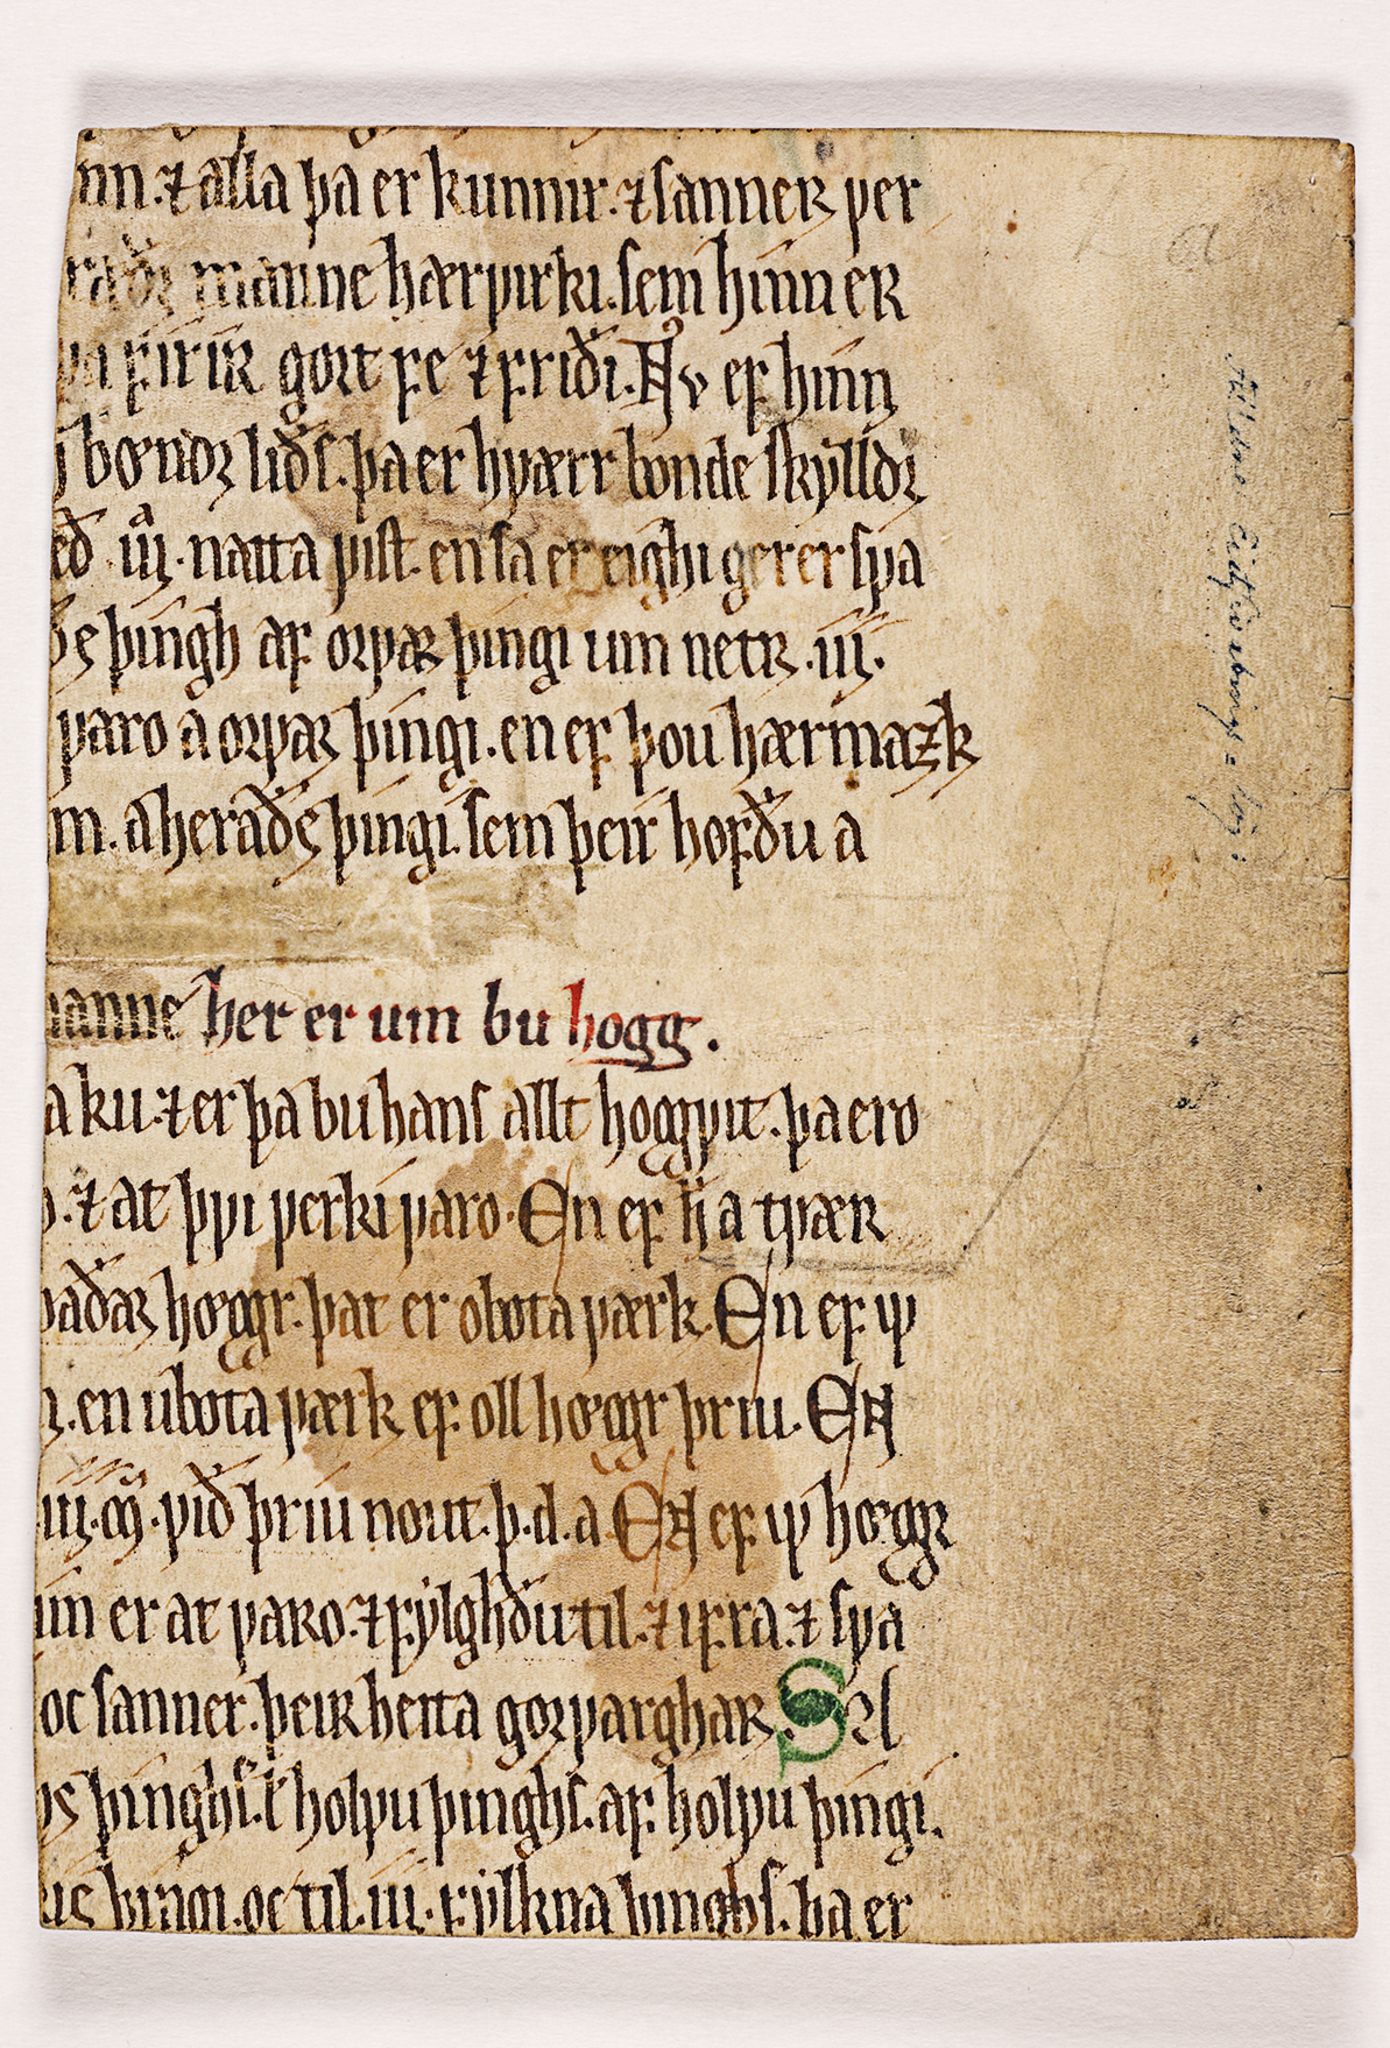 nn. ⁊ alla þa er kunnir. ⁊ sanner ver
manne hærvirki. sem hinn er
firir gort fe ⁊ friði. Nv ef hinn
bœndr liðs. þa er hværr bonde skylldr
eð .iiij. natta vist. en sa er eighi gerer sva
þingh af orvar þingi um netr .iij.
varo a orvar þingi. en ef þou hærmazk
m. a heraðs þingi. sem þeir hofðu a
manne her er um bu hogg.
a ku. ⁊ er þa bu hans allt hoggvit. þa ero
⁊ at þvi verki varo. En ef h̄ a tvær
baðar hœggr. þat er obotaværk. En ef ip
en ubota værk ef oll hœggr þriu. En
við þriu nout. þ. d. a. En ef ip hœggr
er at varo. ⁊ fylghðu til. ⁊ ifra. ⁊ sva
oc sanner. þeir heita gorvarghar. Sel
þinghs. t̄ holvu þinghs. af holvu þingi.
þingi. oc til .iij. fylkna þinghs. þa er
Ældre Eidsivathings-lov: